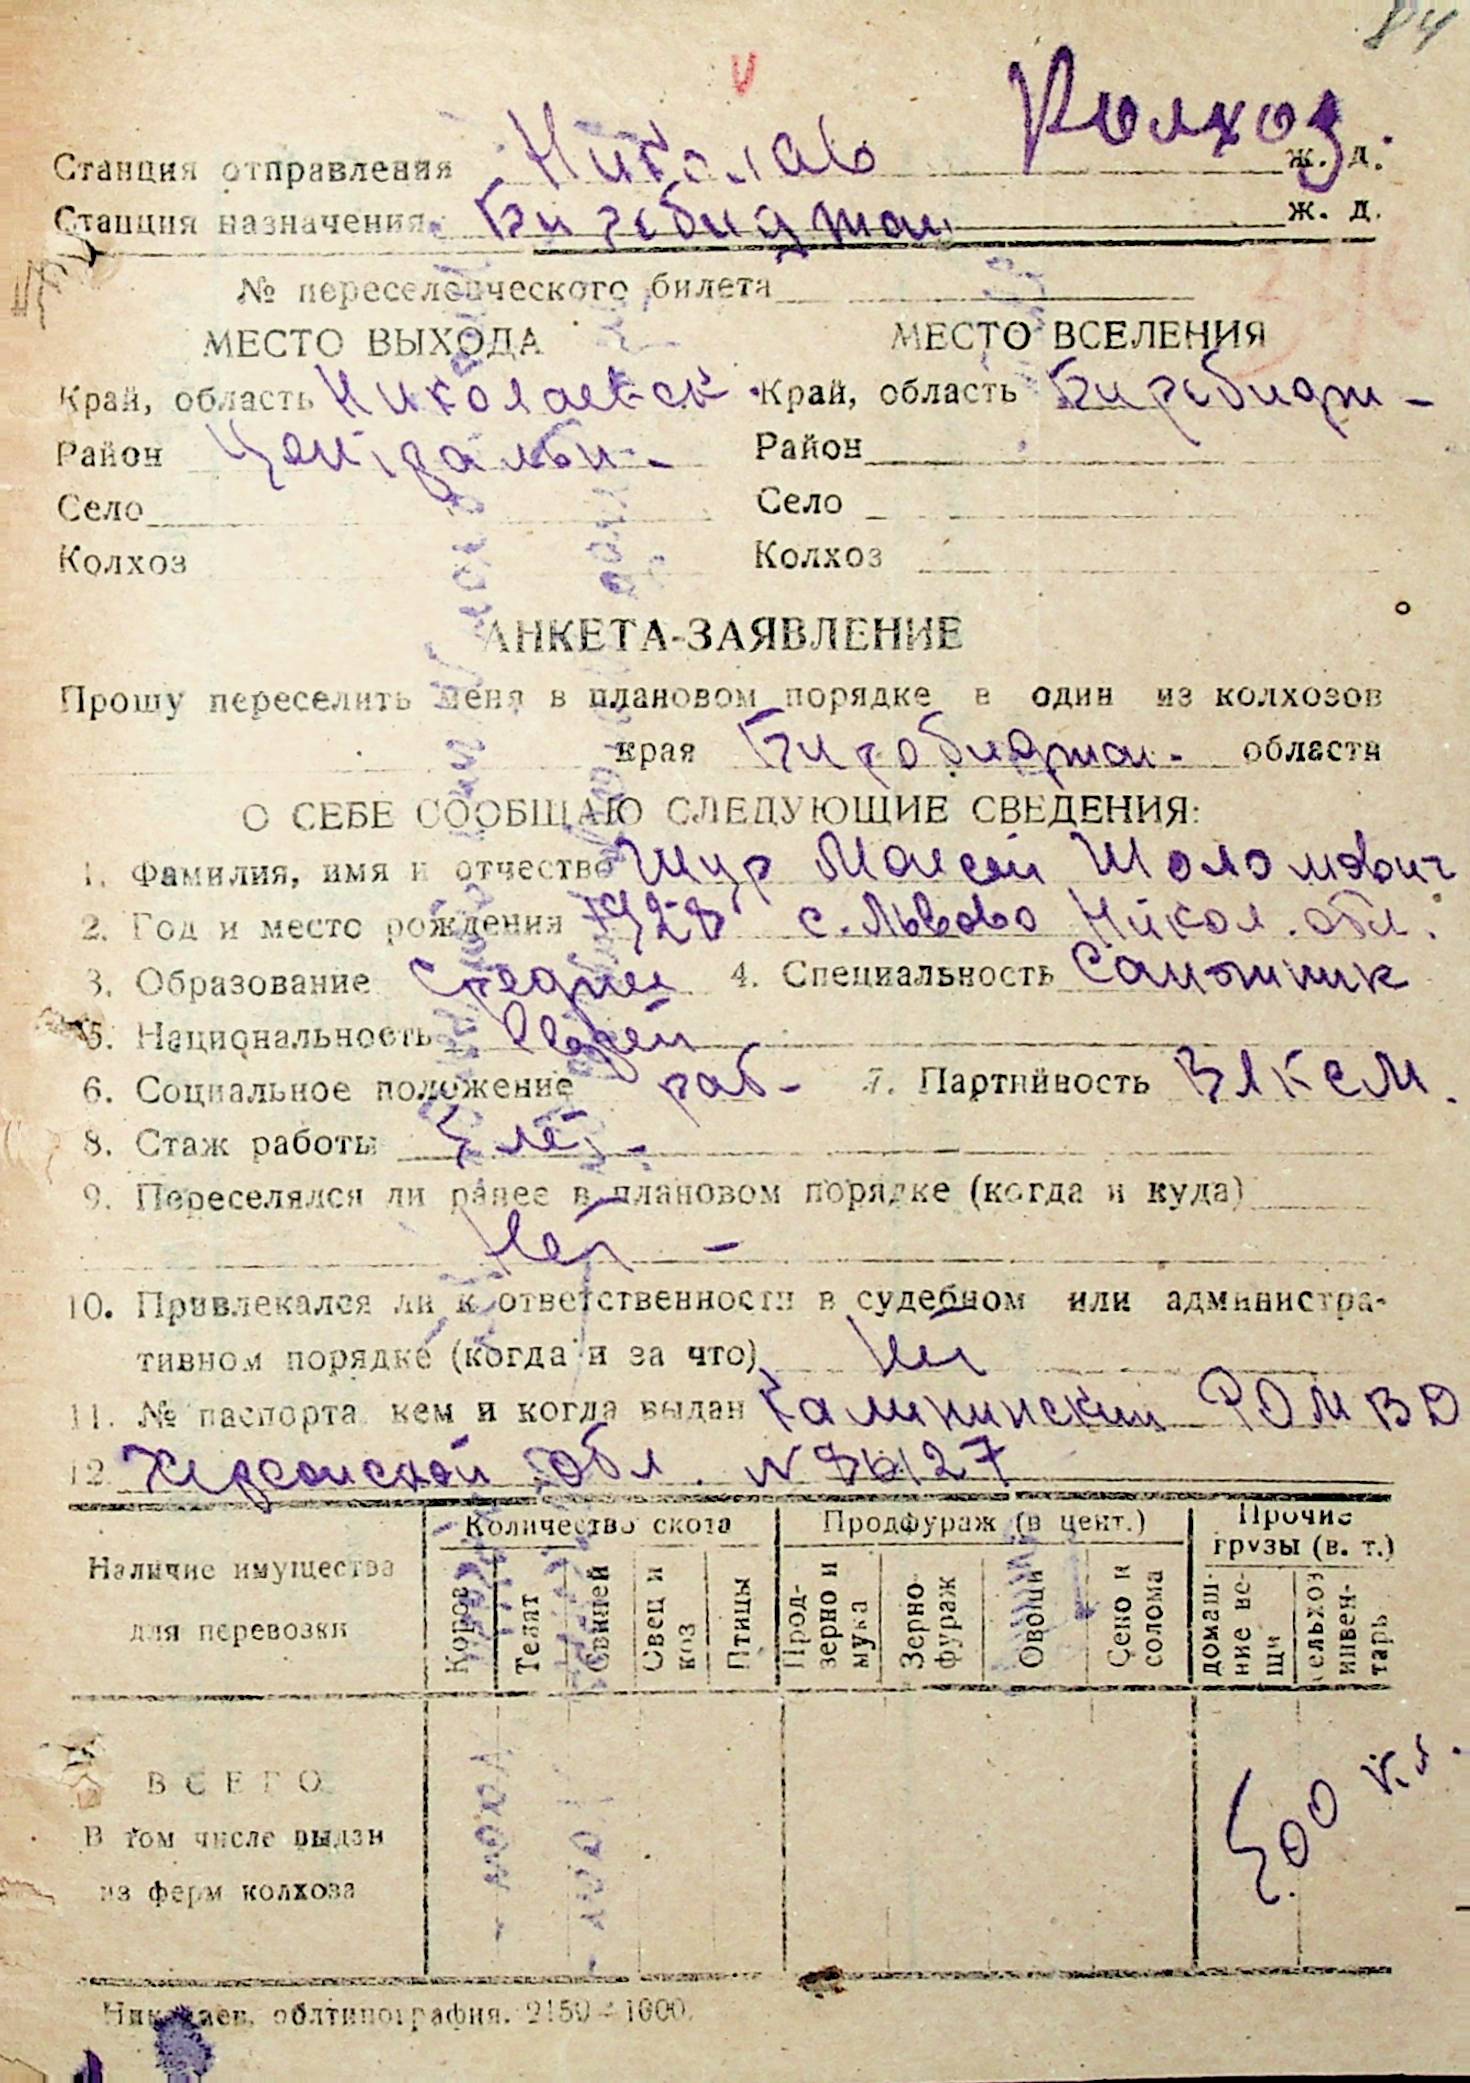 84
Колхоз.
Станция отправления Николаев ж. д.
Станция назначения Биребиджан ж. д.
№ переселенческого билета
МЕСТО ВЫХОДА МЕСТО ВСЕЛЕНИЯ
Край, область Николаевск Край, область Биребидж-
Район Центральн- Район
Село Село
Колхоз Колхоз
АНКЕТА-ЗАЯВЛЕНИЕ
Прошу переселить меня в плановом порядке в один из колхозов
края Биробиджан- области
О СЕБЕ СООБЩАЮ СЛЕДУЮЩИЕ СВЕДЕНИЯ:
1. Фамилия, имя и отчество Шур Моисей Шоломович
2. Год и место рождения 1928 с. Львово Никол. обл.
3. Образование Средне 4. Специальность Сапожник
5. Национальность Еврей
6. Социальное положение раб- 7. Партийность ВЛКСМ.
8. Стаж работы 5 лет-
9. Переселялся ли ранее в плановом порядке (когда и куда)
Нет -
10. Привлекался ли к ответственности в судебном или администра-
тивном порядке (когда и за что) Нет
11. № паспорта кем и когда выдан Калининским РОМВД
12. Херсонской обл. №
Наличие имущества для перевозки
Количество скота Продфураж (в цент.) Прочие грузы (в. т.)
Коров Телят Свиней Овец и коз Птицы Прод-зерно и мука Зерно-фураж Овощи Сено и солома домаш-ние ве-щи сельхоз инвен-тарь
ВСЕГО
В том числе выдан
из ферм колхоза
500 кг.
Николаев, облтипография. 2150-1000.